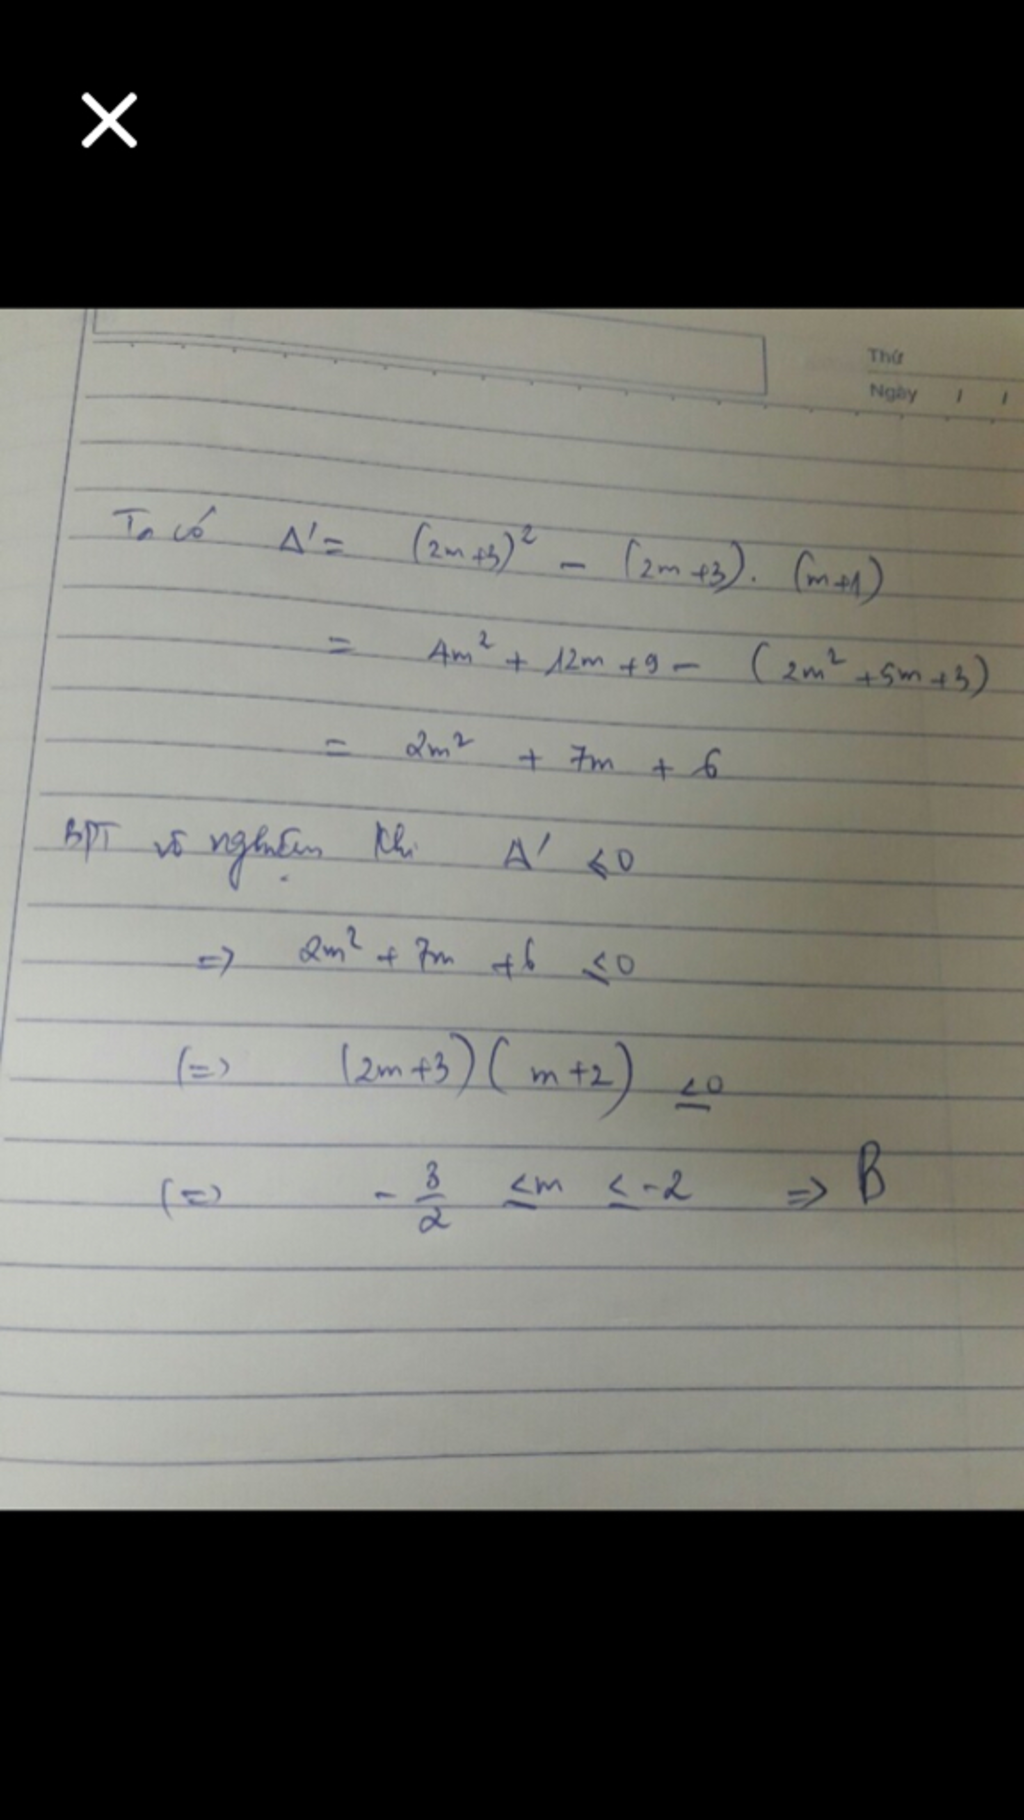 Thứ
Ngày / /
Ta có Δ' = (2m+3)² - (2m+3). (m+1)
= 4m² + 12m + 9 - (2m² + 5m + 3)
= 2m² + 7m + 6
BPT vô nghiệm khi Δ' ≤ 0
=> 2m² + 7m + 6 ≤ 0
(=> (2m+3)(m+2) ≤ 0
(=> - 3/2 ≤ m ≤ -2 => B